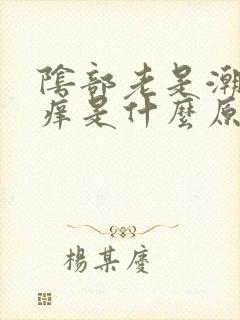 陰部老是潮
痒是什麼原
楊某慶